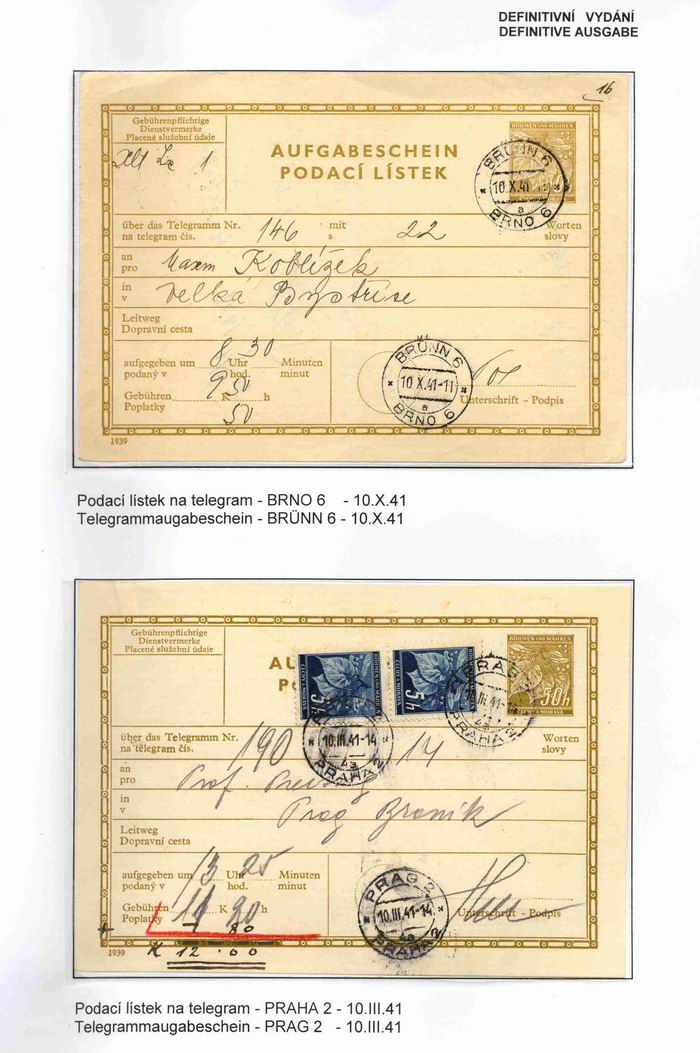 DEFINITIVNÍ VYDÁNÍ
DEFINITIVE AUSGABE
16
Gebührenpflichtige
Dienstvermerke
Placené služební údaje
1
AUFGABESCHEIN
PODACÍ LÍSTEK
BÖHMEN UND MÄHREN
BRÜNN 6
10.X.41
a
BRNO 6
über das Telegramm Nr. 146 mit 22 Worten
na telegram čís. s slovy
an
pro Koblížek
in
v Velká Bystřise
Leitweg
Dopravní cesta
8 30
aufgegeben um Uhr Minuten
podaný v hod. minut
9 50
Gebühren K h
Poplatky 50
BRÜNN 6
10.X.41-11
a
BRNO 6
Unterschrift - Podpis
1939
Podací lístek na telegram - BRNO 6 - 10.X.41
Telegrammaugabeschein - BRÜNN 6 - 10.X.41
Gebührenpflichtige
Dienstvermerke
Placené služební údaje
AU
P
5h
BÖHMEN UND MÄHREN
ČECHY A MORAVA
5h
BÖHMEN UND MÄHREN
ČECHY A MORAVA
BÖHMEN UND MÄHREN
50h
PRAG 2
10.III.41-14
4a
PRAHA 2
10.III.41-14
4a
PRAHA 2
über das Telegramm Nr. 190 14 Worten
na telegram čís. slovy
an
pro Prof.
in
v Prag Braník
Leitweg
Dopravní cesta
aufgegeben um 13 Uhr 25 Minuten
podaný v hod. minut
Gebühren 11 K 20 h
Poplatky
+ 80
K 12.00
PRAG 2
10.III.41-14
4a
PRAHA 2
Unterschrift - Podpis
1939
Podací lístek na telegram - PRAHA 2 - 10.III.41
Telegrammaugabeschein - PRAG 2 - 10.III.41